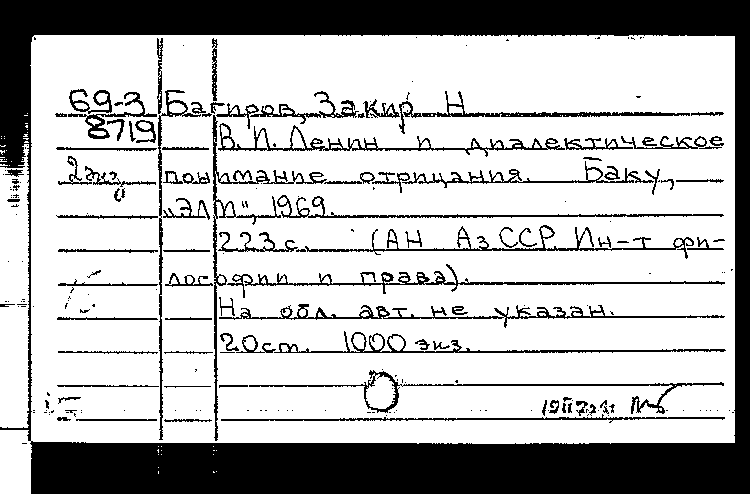 69-3 Багиров, Закир Н
8719 В. И. Ленин и диалектическое
2 экз понимание отрицания. Баку,
"ЭЛМ", 1969.
223 с. (АН АзССР. Ин-т фи-
лософии и права).
На обл. авт. не указан.
20 ст. 1000 экз.